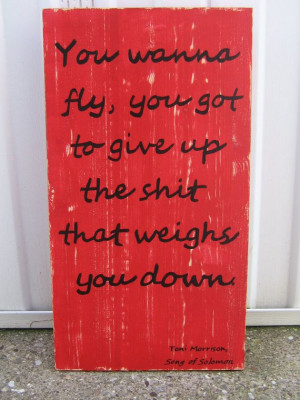 You wanna
fly, you got
to give up
the shit
that weighs
you down.
Toni Morrison,
Song of Solomon